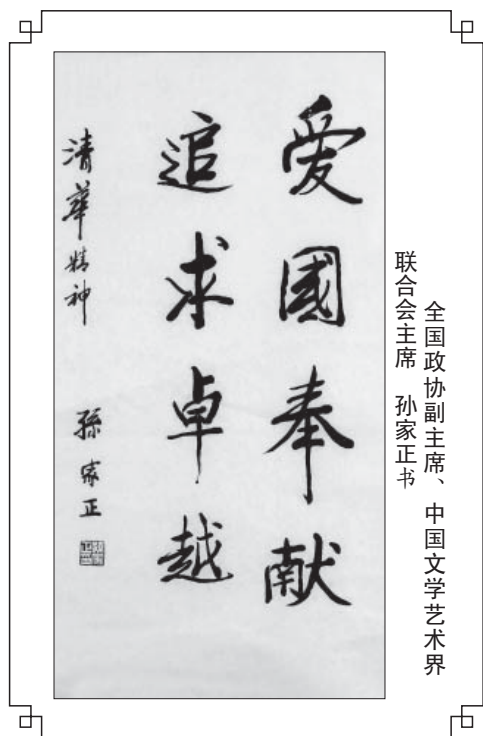 爱國奉献
追求卓越
清華精神
孫家正
全国政协副主席、中国文学艺术界
联合会主席　孙家正书